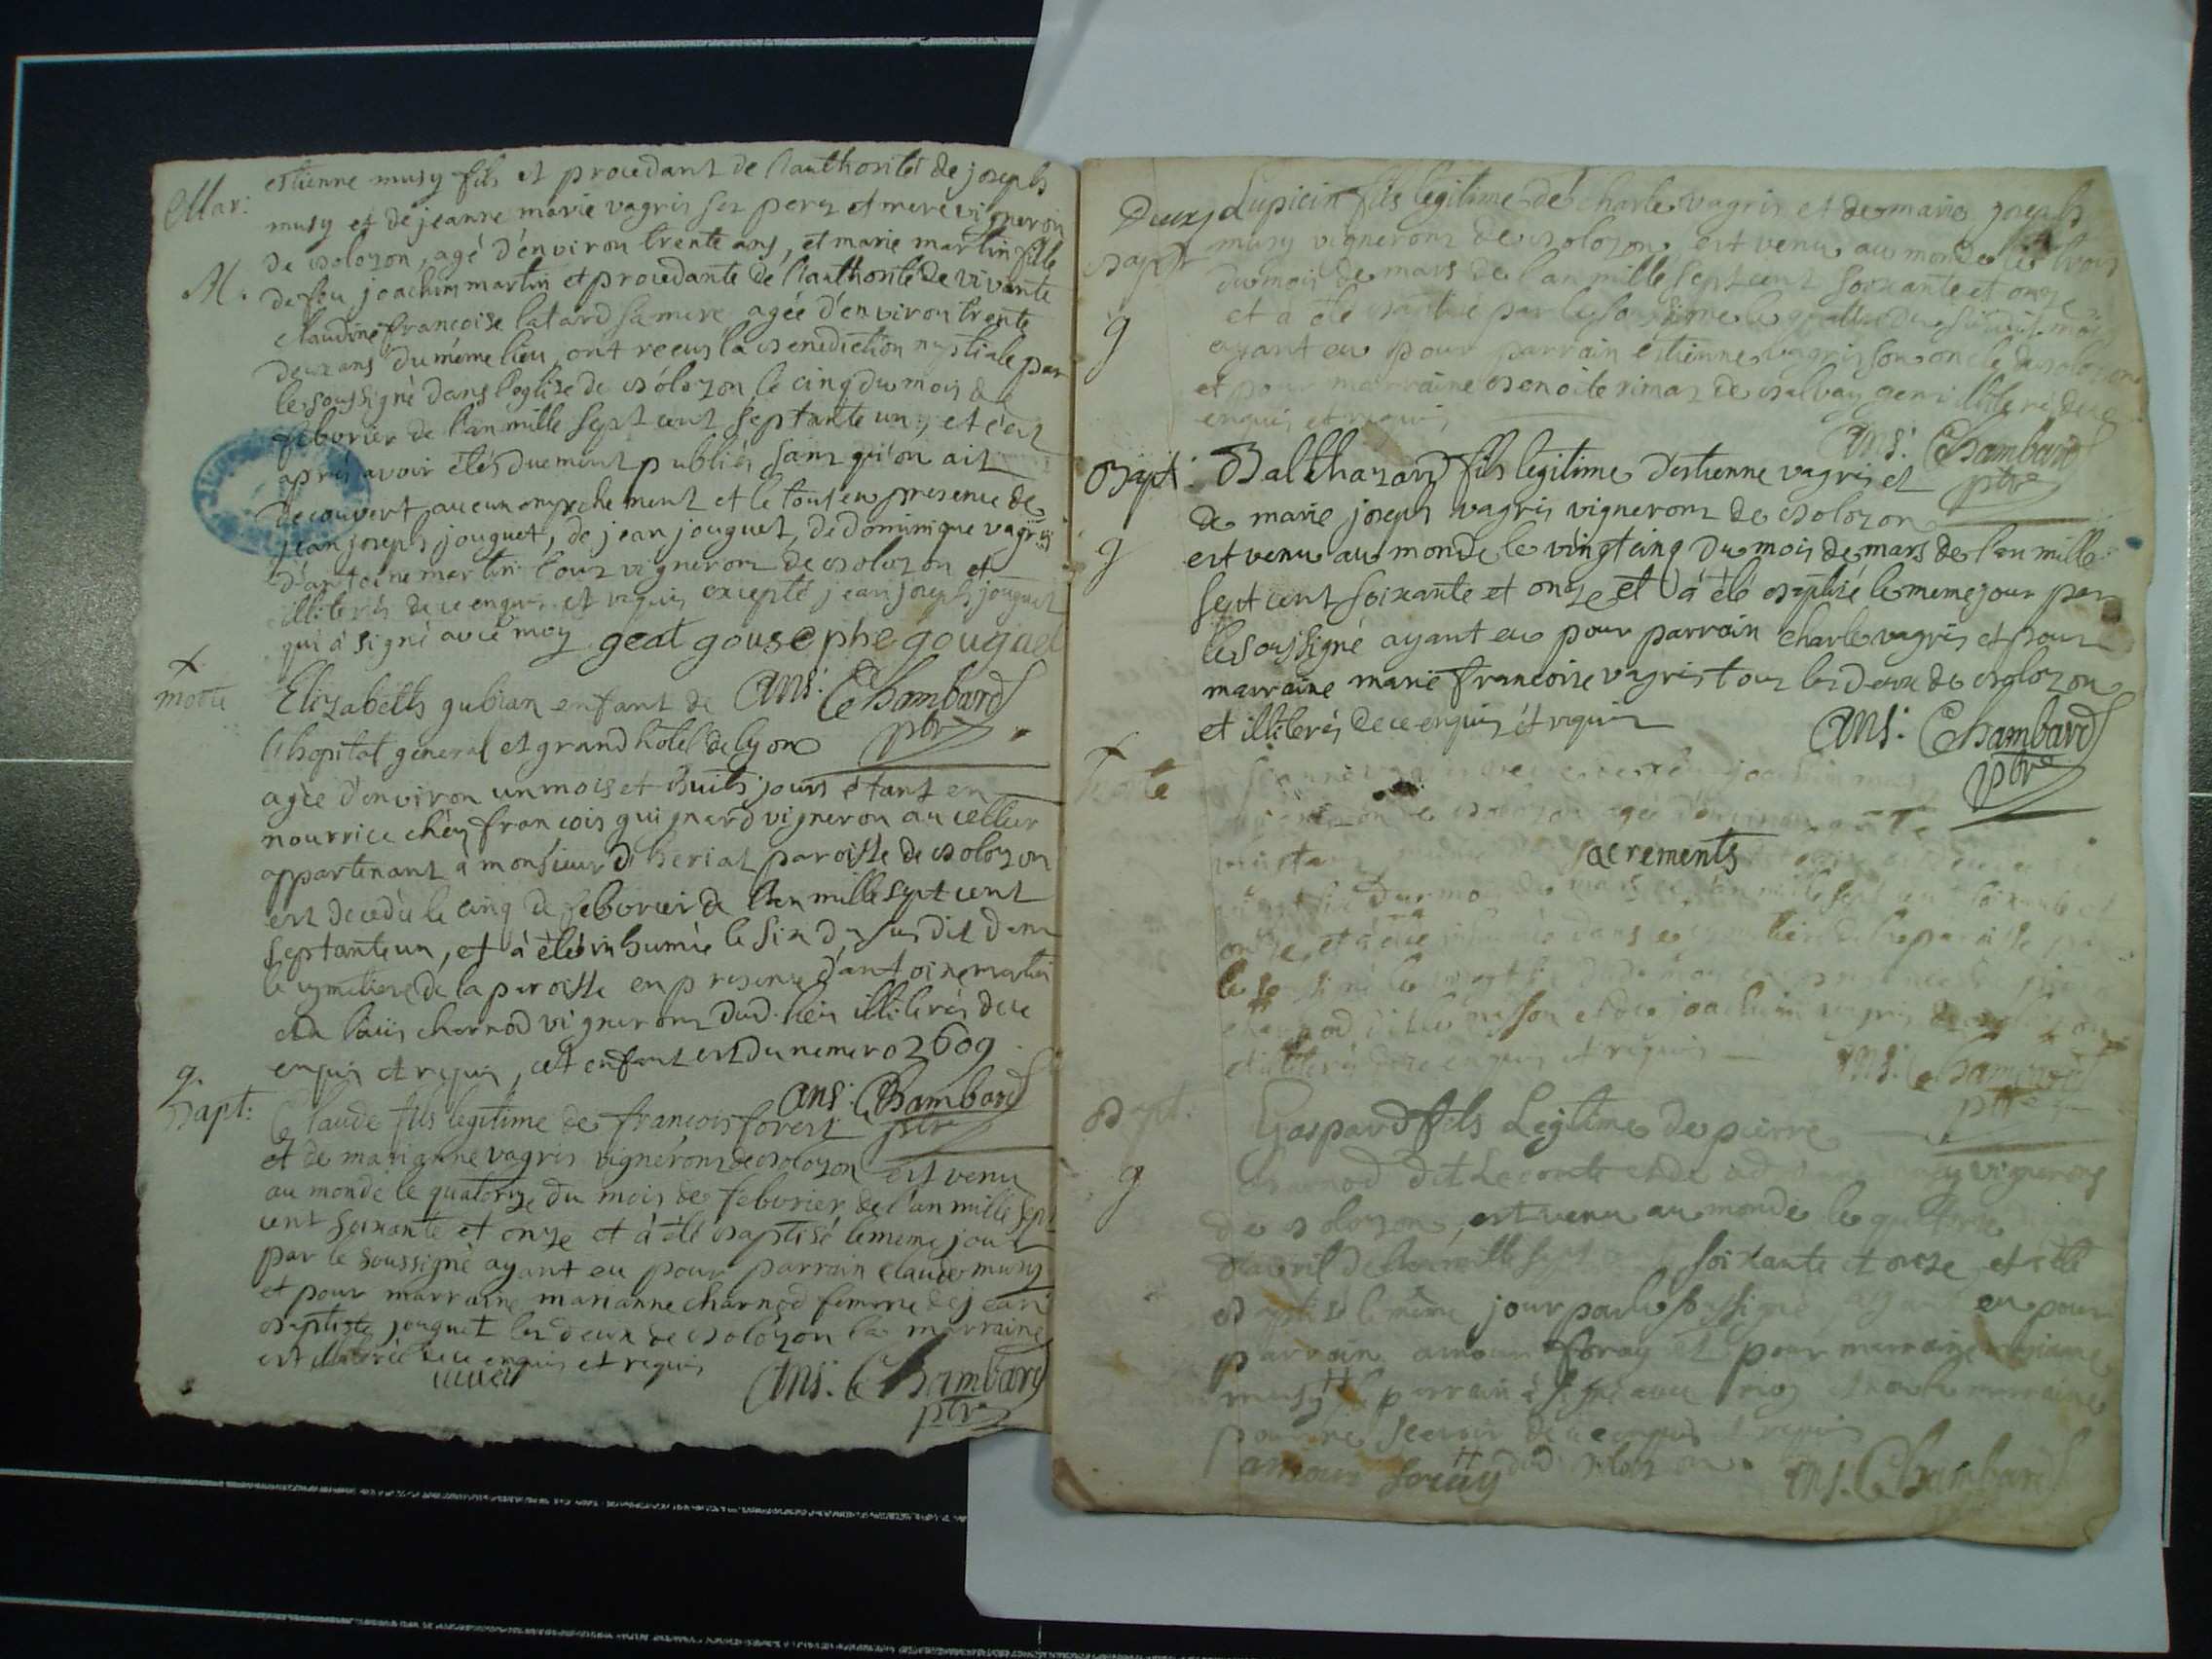 Mar:
estienne musy fils et procedant de l'authorité de joseph
musy et de jeanne marie vagris ses pere et mere vigneron
de bolozon, agé d'environ trente ans, et marie martin fille
M.
de feu joachim martin et procedante de l'authorité de vivante
claudine francoise latard sa mere agée d'environ trente
deux ans du même lieu, ont recus la benediction nuptiale par
le soussigné dans l'eglise de bolozon le cinq du mois de
feborier de l'an mille sept cent septante un, et c'est
aprés avoir étés duement publiés sans qu'on ait
decouvert aucun empechement et le tous en presence de
jean joseph jouguet, de jean jouguet, de dominique vagris
d'antoine martin tous vignerons de bolozon et
illiterés de ce enquis et requis excepté jean joseph jouguet
qui à signé avec moy geat gousephe gougaet
morte
Elizabeth gubian enfant de Ans: Chambard
l'hopital general et grand hôtel de lyon ptre
agée d'environ un mois et huits jours étant en
nourrice chéz francois guignard vigneron au cellier
appartenant à monsieur d'heriat paroisse de bolozon
est decedée le cinq de feborier de l'an mille sept cent
septante un, et à étée inhumée le six du susdit dans
le cymetiere de la paroisse en presence d'antoine martin
et de loüis charnod vignerons dud. lieu illiterés de ce
enquis et requis, cet enfant est du numero 2609
g.
Bapt:
Ans: Chambard
Claude fils legitime de francois forest ptre
et de marianne vagris vignerons de bolozon est venu
au monde le quatorze du mois de feborier de l'an mille sept
cent soixante et onze et à été baptisé le meme jour
par le soussigné ayant eu pour parrain claude musy
et pour marraine marianne charnod femme de jean
baptiste jouguet les deux de bolozon la marraine
est illiterée de ce enquis et requis
Ans. Chambard
ptre
Deux Lupicin fils legitime de charle vagris et de marie joseph
Bapt musy vignerons de bolozon est venu au monde le trois
du mois de mars de l'an mille sept cent soixante et onze
g
et à été baptisé par le soussigné le quatre du susdit mois
ayant eu pour parrain estienne vagris son oncle de bolozon
et pour marraine benoite rimaz de illiterés de ce
enquis et requis
Ans: Chambard
ptre
Bapt: Balthazard fils legitime d'estienne vagris et
de marie joseph vagris vignerons de bolozon
g
est venu au monde le vingt cinq du mois de mars de l'an mille
sept cent soixante et onze et à été baptisé le meme jour par
le soussigné ayant eu pour parrain charle vagris et pour
marraine marie francoise vagris tous les deux de bolozon
et illiterés de ce enquis et requis Ans: Chambard
ptre
morte
joachim musy
de bolozon agée d'environ
sacrements
du mois de mars de l'an mille sept cent soixante et
onze, et à été inhumée dans le cymetiere de la paroisse par
le soussigné le vingt en presence de
charnod et de joachim vagris de bolozon
et illiterés de ce enquis et requis Ans: Chambard
ptre
Bapt:
Gaspard fils Legitime de pierre
g
charnod dit Leconte et de musy vignerons
de bolozon, est venu au monde le quatorze
d'avril de l'an mille sept cent soixante et onze et a été
baptisé le même jour par le soussigné ayant eu pour
parrain amour foray et pour marraine
musy le parrain à signé avec moy et non la marraine
pour ne scavoir de ce enquis et requis
amour foray dud. bolozon. Ans. Chambard